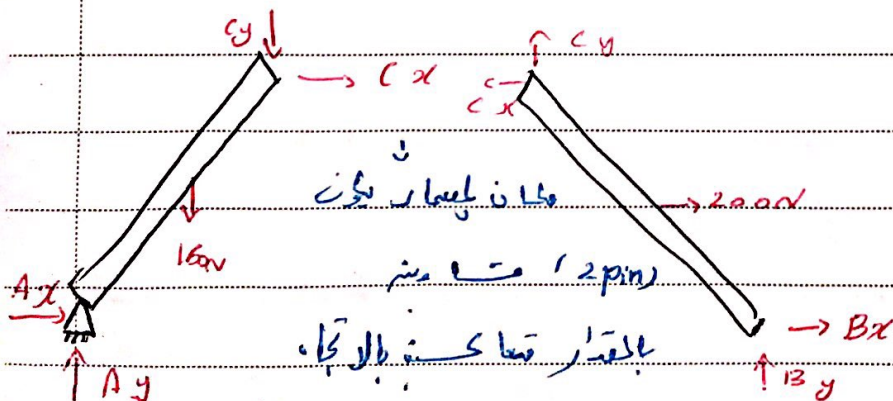 Cy
Cy
Cx
Cx
مكان المسمار يكون
200N
160N
(2 pin) متساويه
Ax
Bx
بالمقدار متعاكسة بالاتجاه
Ay
By